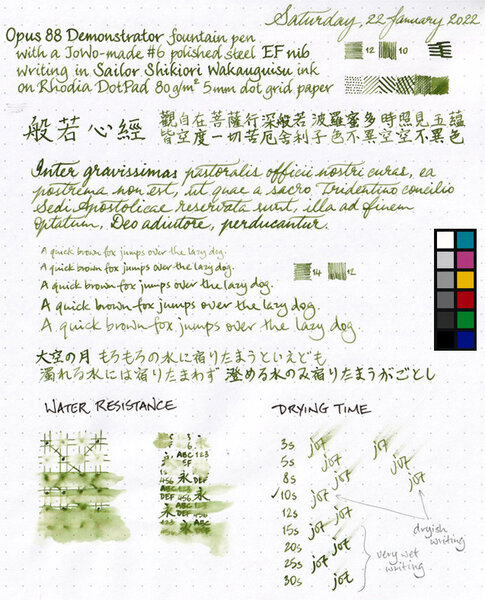 Saturday, 22 January 2022
Opus 88 Demonstrator fountain pen
with a JoWo-made #6 polished steel EF nib
writing in Sailor Shikiori Wakauguisu ink
on Rhodia DotPad 80g/m² 5mm dot grid paper
12 10
般若心經
觀自在菩薩行深般若波羅蜜多時照見五蘊
皆空度一切苦厄舍利子色不異空空不異色
Inter gravissimas pastoralis officii nostri curas, ea
postrema non est, ut quae a sacro Tridentino concilio
Sedi Apostolicae reservata sunt, illa ad finem
optatum, Deo adiutore, perducantur.
A quick brown fox jumps over the lazy dog.
A quick brown fox jumps over the lazy dog.
A quick brown fox jumps over the lazy dog.
A quick brown fox jumps over the lazy dog.
A quick brown fox jumps over the lazy dog.
14 12
大空の月 もろもろの水に宿りたまうといえども
濁れる水には宿りたまわず 澄める水のみ宿りたまうがごとし
WATER RESISTANCE
ABC 123
5F
456 永 DEF
ABC 123
DEF 456 永
永 ABC
456 DEF
123 ABC
DRYING TIME
3s jot jot
5s jot jot
8s jot jot
10s jot
12s jot jot
15s jot jot
20s jot
25s jot jot
30s jot
dryish
writing
very wet
writing